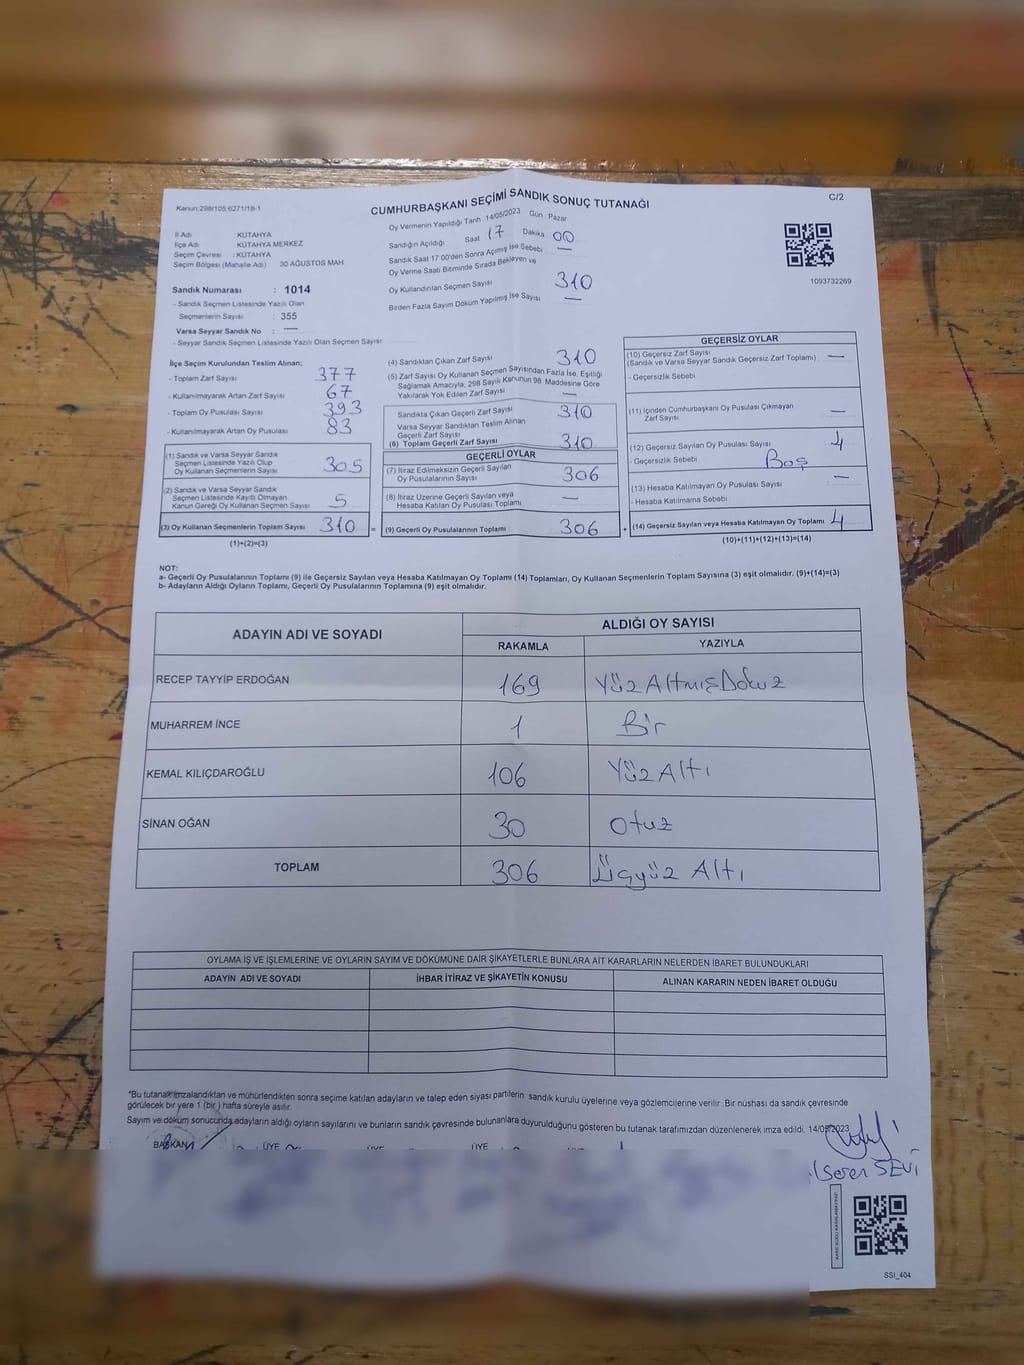 Kanun:298/105,6271/18-1
CUMHURBAŞKANI SEÇİMİ SANDIK SONUÇ TUTANAĞI
C/2
Oy Vermenin Yapıldığı Tarih 14/05/2023 Gün : Pazar
Sandığın Açıldığı Saat 17 Dakika 00
Sandık Saat 17:00'den Sonra Açılmış İse Sebebi —
Oy Verme Saati Bitiminde Sırada Bekleyen ve
Oy Kullandırılan Seçmen Sayısı 310
Birden Fazla Sayım Döküm Yapılmış İse Sayısı —
1093732269
İl Adı : KÜTAHYA
İlçe Adı : KÜTAHYA MERKEZ
Seçim Çevresi : KÜTAHYA
Seçim Bölgesi (Mahalle Adı) : 30 AĞUSTOS MAH.
Sandık Numarası : 1014
- Sandık Seçmen Listesinde Yazılı Olan
Seçmenlerin Sayısı : 355
Varsa Seyyar Sandık No : —
- Seyyar Sandık Seçmen Listesinde Yazılı Olan Seçmen Sayısı
İlçe Seçim Kurulundan Teslim Alınan:
- Toplam Zarf Sayısı 377
- Kullanılmayarak Artan Zarf Sayısı 67
- Toplam Oy Pusulası Sayısı 393
- Kullanılmayarak Artan Oy Pusulası 83
(1) Sandık ve Varsa Seyyar Sandık
Seçmen Listesinde Yazılı Olup
Oy Kullanan Seçmenlerin Sayısı 305
(2) Sandık ve Varsa Seyyar Sandık
Seçmen Listesinde Kayıtlı Olmayan
Kanun Gereği Oy Kullanan Seçmen Sayısı 5
(3) Oy Kullanan Seçmenlerin Toplam Sayısı 310 =
(1)+(2)=(3)
(4) Sandıktan Çıkan Zarf Sayısı 310
(5) Zarf Sayısı Oy Kullanan Seçmen Sayısından Fazla İse, Eşitliği
Sağlamak Amacıyla, 298 Sayılı Kanunun 98. Maddesine Göre
Yakılarak Yok Edilen Zarf Sayısı —
Sandıkta Çıkan Geçerli Zarf Sayısı 310
Varsa Seyyar Sandıktan Teslim Alınan
Geçerli Zarf Sayısı
(6) Toplam Geçerli Zarf Sayısı 310
GEÇERLİ OYLAR
(7) İtiraz Edilmeksizin Geçerli Sayılan
Oy Pusulasının Sayısı 306
(8) İtiraz Üzerine Geçerli Sayılan veya
Hesaba Katılan Oy Pusulası Toplamı —
(9) Geçerli Oy Pusulalarının Toplamı 306 +
GEÇERSİZ OYLAR
(10) Geçersiz Zarf Sayısı
(Sandık ve Varsa Seyyar Sandık Geçersiz Zarf Toplamı) —
- Geçersizlik Sebebi
(11) İçinden Cumhurbaşkanı Oy Pusulası Çıkmayan
Zarf Sayısı —
(12) Geçersiz Sayılan Oy Pusulası Sayısı 4
- Geçersizlik Sebebi Boş
(13) Hesaba Katılmayan Oy Pusulası Sayısı —
- Hesaba Katılmama Sebebi
(14) Geçersiz Sayılan veya Hesaba Katılmayan Oy Toplamı 4
(10)+(11)+(12)+(13)=(14)
NOT:
a- Geçerli Oy Pusulalarının Toplamı (9) ile Geçersiz Sayılan veya Hesaba Katılmayan Oy Toplamı (14) Toplamları, Oy Kullanan Seçmenlerin Toplam Sayısına (3) eşit olmalıdır. (9)+(14)=(3)
b- Adayların Aldığı Oyların Toplamı, Geçerli Oy Pusulalarının Toplamına (9) eşit olmalıdır.
ADAYIN ADI VE SOYADI
ALDIĞI OY SAYISI
RAKAMLA YAZIYLA
RECEP TAYYİP ERDOĞAN 169 YüzAltmışDokuz
MUHARREM İNCE 1 Bir
KEMAL KILIÇDAROĞLU 106 YüzAltı
SİNAN OĞAN 30 Otuz
TOPLAM 306 Üçyüz Altı
OYLAMA İŞ VE İŞLEMLERİNE VE OYLARIN SAYIM VE DÖKÜMÜNE DAİR ŞİKAYETLERLE BUNLARA AİT KARARLARIN NELERDEN İBARET BULUNDUKLARI
ADAYIN ADI VE SOYADI İHBAR İTİRAZ VE ŞİKAYETİN KONUSU ALINAN KARARIN NEDEN İBARET OLDUĞU
*Bu tutanak imzalandıktan ve mühürlendikten sonra seçime katılan adayların ve talep eden siyasi partilerin sandık kurulu üyelerine veya gözlemcilerine verilir. Bir nüshası da sandık çevresinde
görülecek bir yere 1 (bir) hafta süreyle asılır.
Sayım ve döküm sonucunda adayların aldığı oyların sayılarını ve bunların sandık çevresinde bulunanlara duyurulduğunu gösteren bu tutanak tarafımızdan düzenlenerek imza edildi. 14/05/2023
BAŞKAN ÜYE ÜYE ÜYE
SSI_404